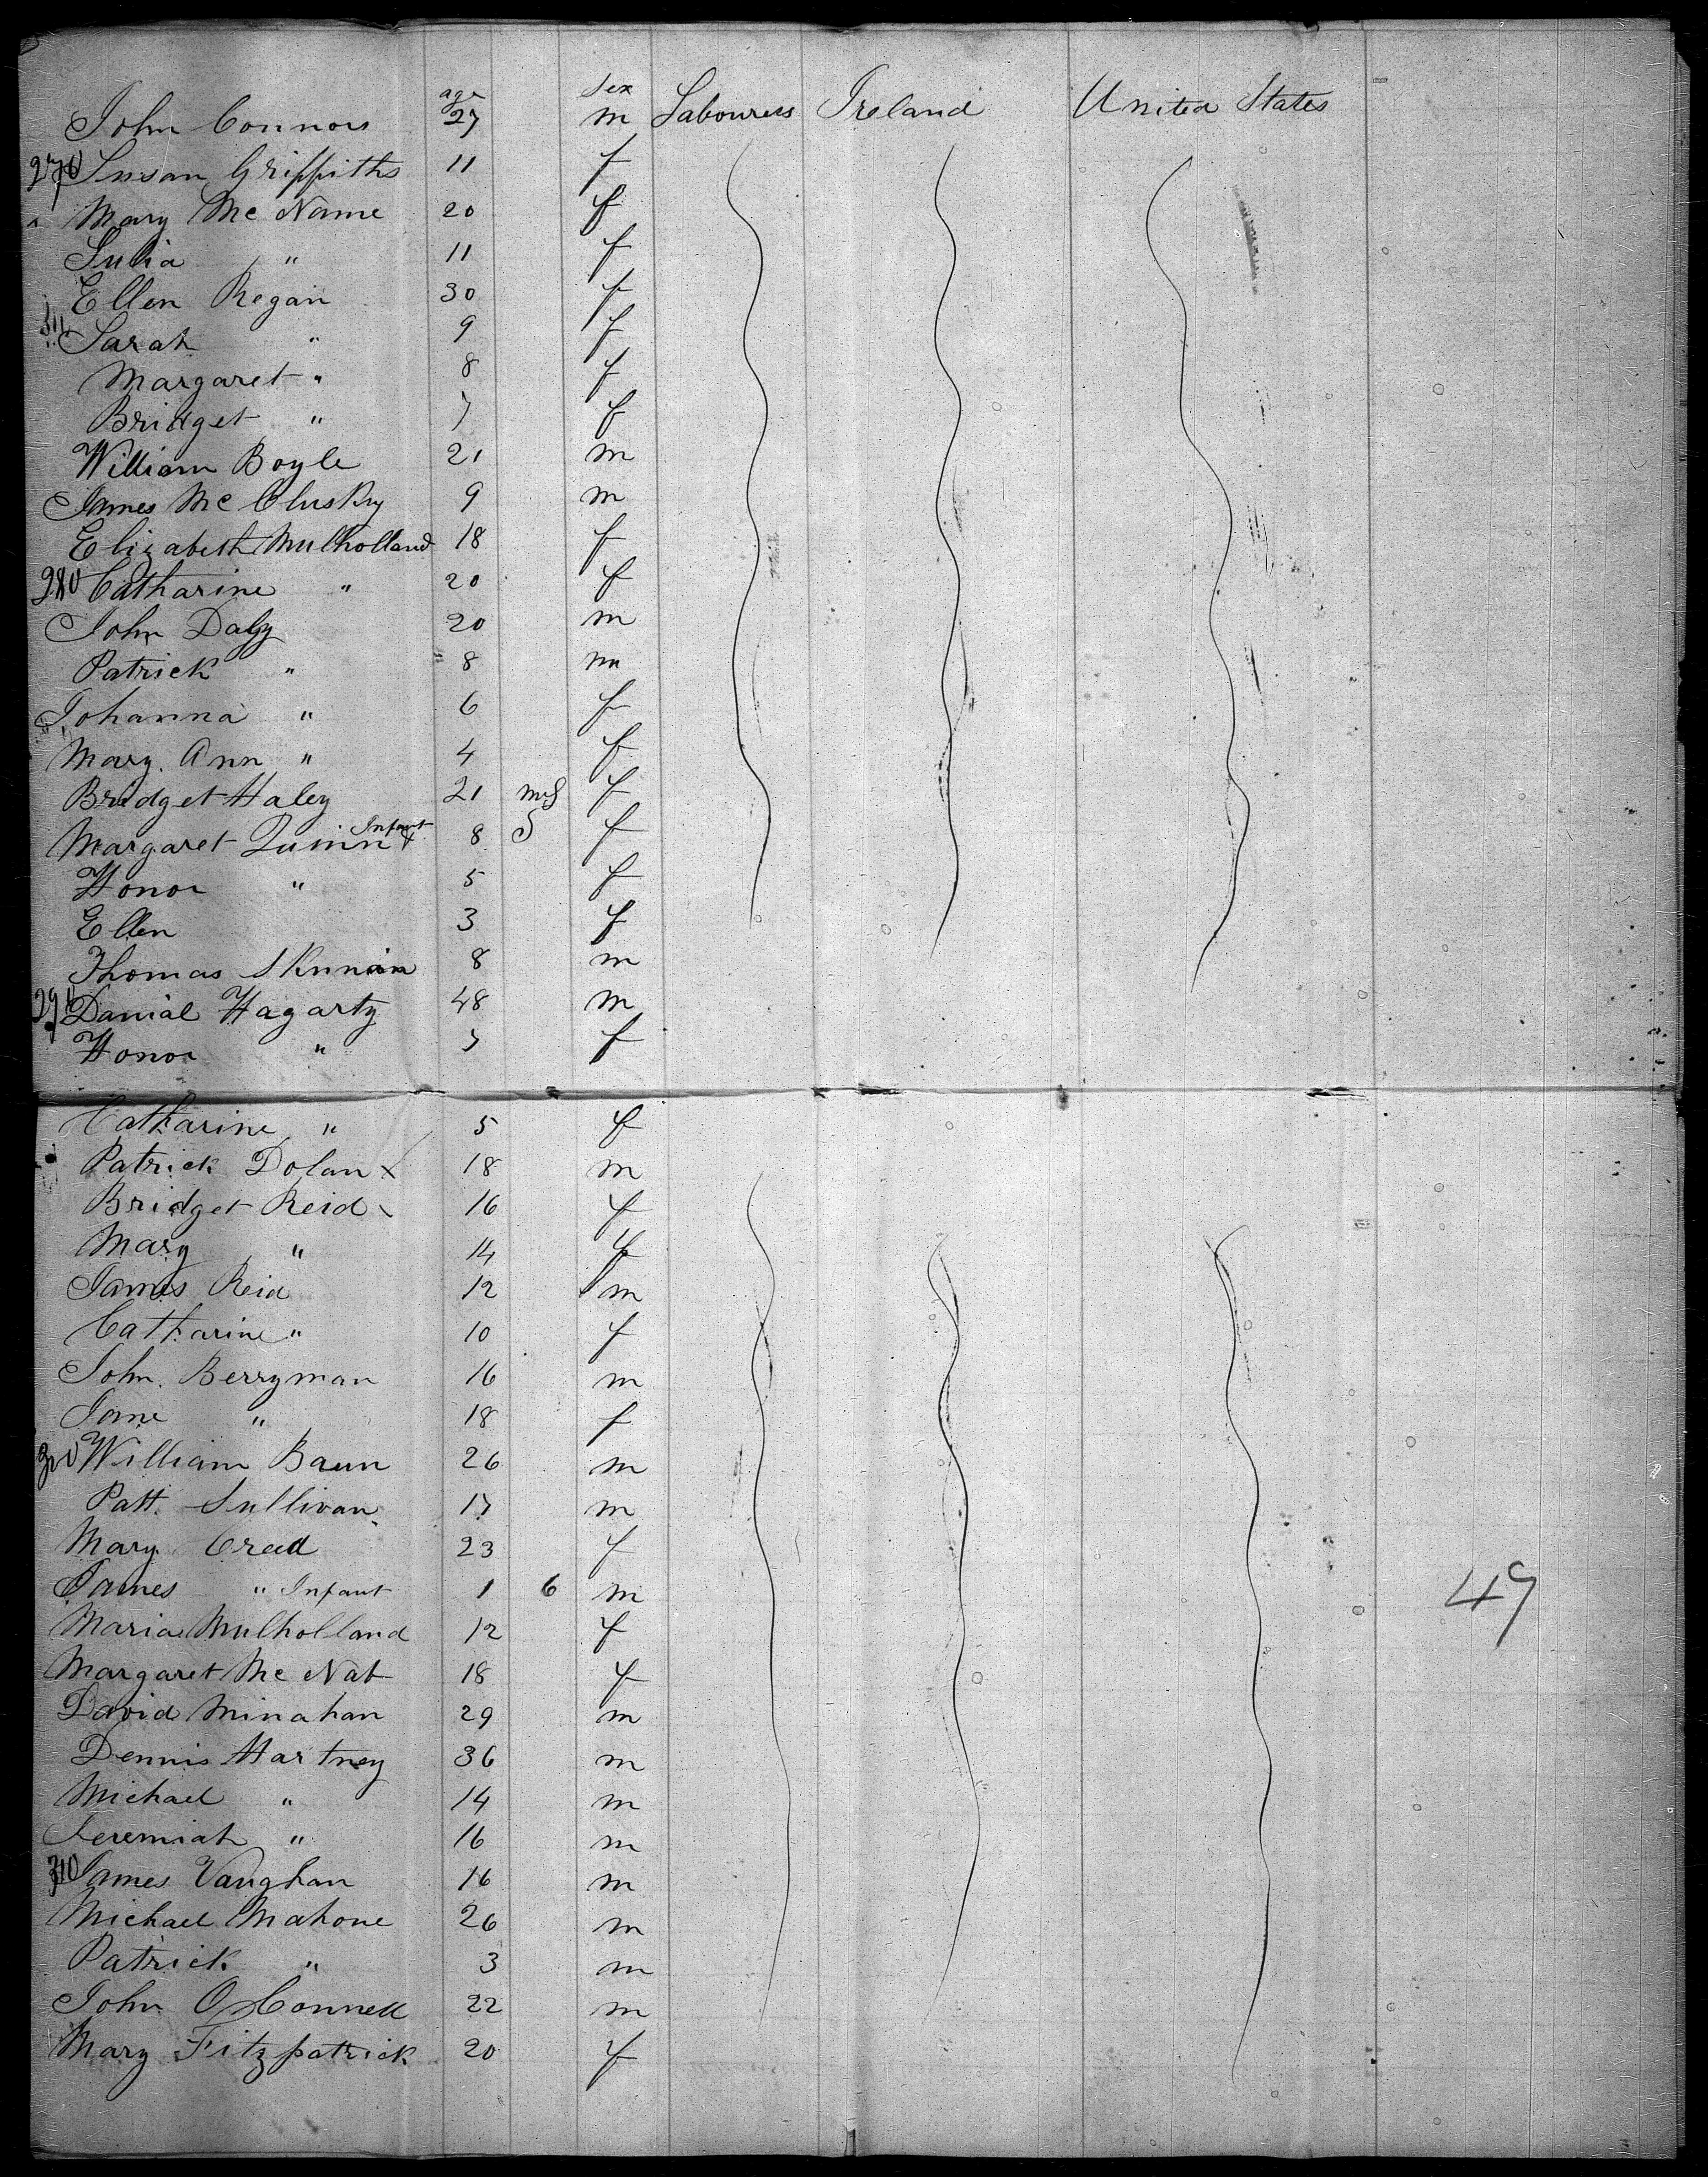 age sex
John Connors 27 m Labourers Ireland United States
270 Susan Griffiths 11 f
Mary Mc Name 20 f
Julia " 11 f
Ellen Regan 30 f
Sarah " 9 f
Margaret " 8 f
Bridget " 7 f
William Boyle 21 m
James Mc Clusky 9 m
Elizabeth Mulholland 18 f
280 Catharine " 20 f
John Daly 20 m
Patrick " 8 m
Johanna " 6 f
Mary Ann " 4 f
Bridget Haley 21 f
Infant
Margaret Quinn 8 f
Honor " 5 f
Ellen 3 f
Thomas 8 m
290 Danial Hagarty 48 m
Honor " 7 f
Catharine " 5 f
Patrick Dolan x 18 m
Bridget Reid 16 f
Mary " 14 f
James Reid 12 m
Catharine " 10 f
John Berryman 16 m
Jane " 18 f
300 William Baun 26 m
Patt. Sullivan 17 m
Mary Creed 23 f
James " Infant 1 6 m
Maria Mulholland 12 f
Margaret Mc Nab 18 f
David Minahan 29 m
Dennis Hartney 36 m
Michael " 14 m
Jeremiah " 16 m
310 James Vaughan 16 m
Michael Mahone 26 m
Patrick " 3 m
John O Connell 22 m
Mary Fitzpatrick 20 f
47